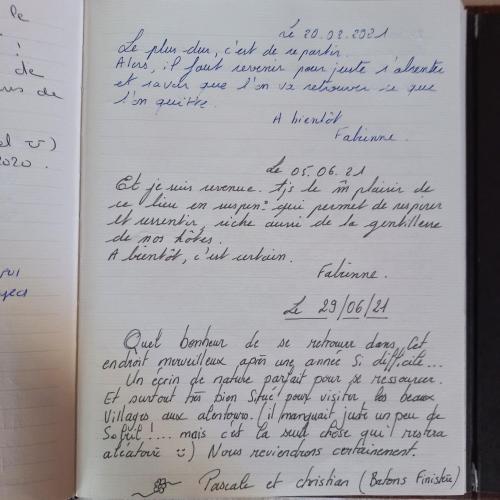 le
!
de
us de
2020.
Le 20.02.2021
Le plus dur, c'est de repartir.
Alors, il faut revenir pour juste s'absenter
et savoir que l'on va retrouver ce que
l'on quitte.
A bientôt
Fabienne.
Le 05.06.21
Et je suis revenue. Tjs le m̂ plaisir de
ce lieu en suspens qui permet de respirer
et ressentir, riche aussi de la gentillesse
de nos hôtes.
A bientôt, c'est certain.
Fabienne.
Le 29/06/21
Quel bonheur de se retrouver dans cet
endroit merveilleux après une année si difficile...
Un écrin de nature parfait pour se ressourcer.
Et surtout très bien situé pour visiter les beaux
villages aux alentours. (il manquait juste un peu de
Soleil !.... mais c'est la seule chose qui restera
aléatoire :) Nous reviendrons certainement.
Pascale et christian (Bretons Finistère)